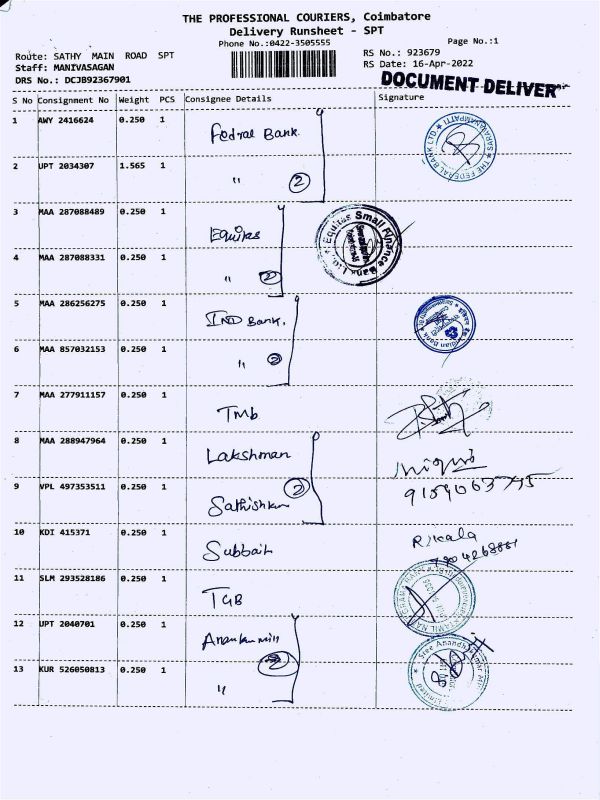 THE PROFESSIONAL COURIERS, Coimbatore
Delivery Runsheet - SPT
Phone No.:0422-3505555
Page No.:1
Route: SATHY MAIN ROAD SPT
RS No.: 923679
Staff: MANIVASAGAN
RS Date: 16-Apr-2022
DRS No.: DCJB92367901
DOCUMENT DELIVER
S No Consignment No Weight PCS Consignee Details Signature
1 AWY 2416624 0.250 1 Fedral Bank
THE FEDERAL BANK LTD.
2 UPT 2034307 1.565 1 " 2
3 MAA 287088489 0.250 1 Equitas
Equitas Small Finance Bank Ltd.
4 MAA 287088331 0.250 1 " 2
5 MAA 286256275 0.250 1 IND Bank.
Indian Bank
6 MAA 857032153 0.250 1 " 2
7 MAA 277911157 0.250 1 Tmb
8 MAA 288947964 0.250 1 Lakshman
9 VPL 497353511 0.250 1 Sathishkum 2
10 KDI 415371 0.250 1 Subbaih
R/kala
11 SLM 293528186 0.250 1 TGB
12 UPT 2040701 0.250 1 Anandkumar mill
13 KUR 526050813 0.250 1 " 2